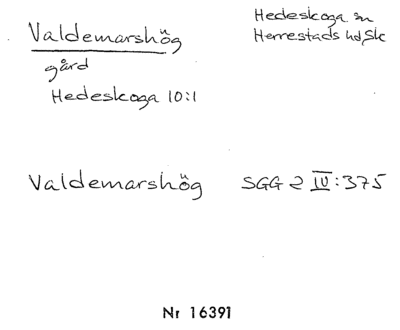 Valdemarshög
gård
Hedeskoga 10:1
Hedeskoga sn
Herrestads hd, Sk
Valdemarshög SGG 2 IV:375
Nr 16391